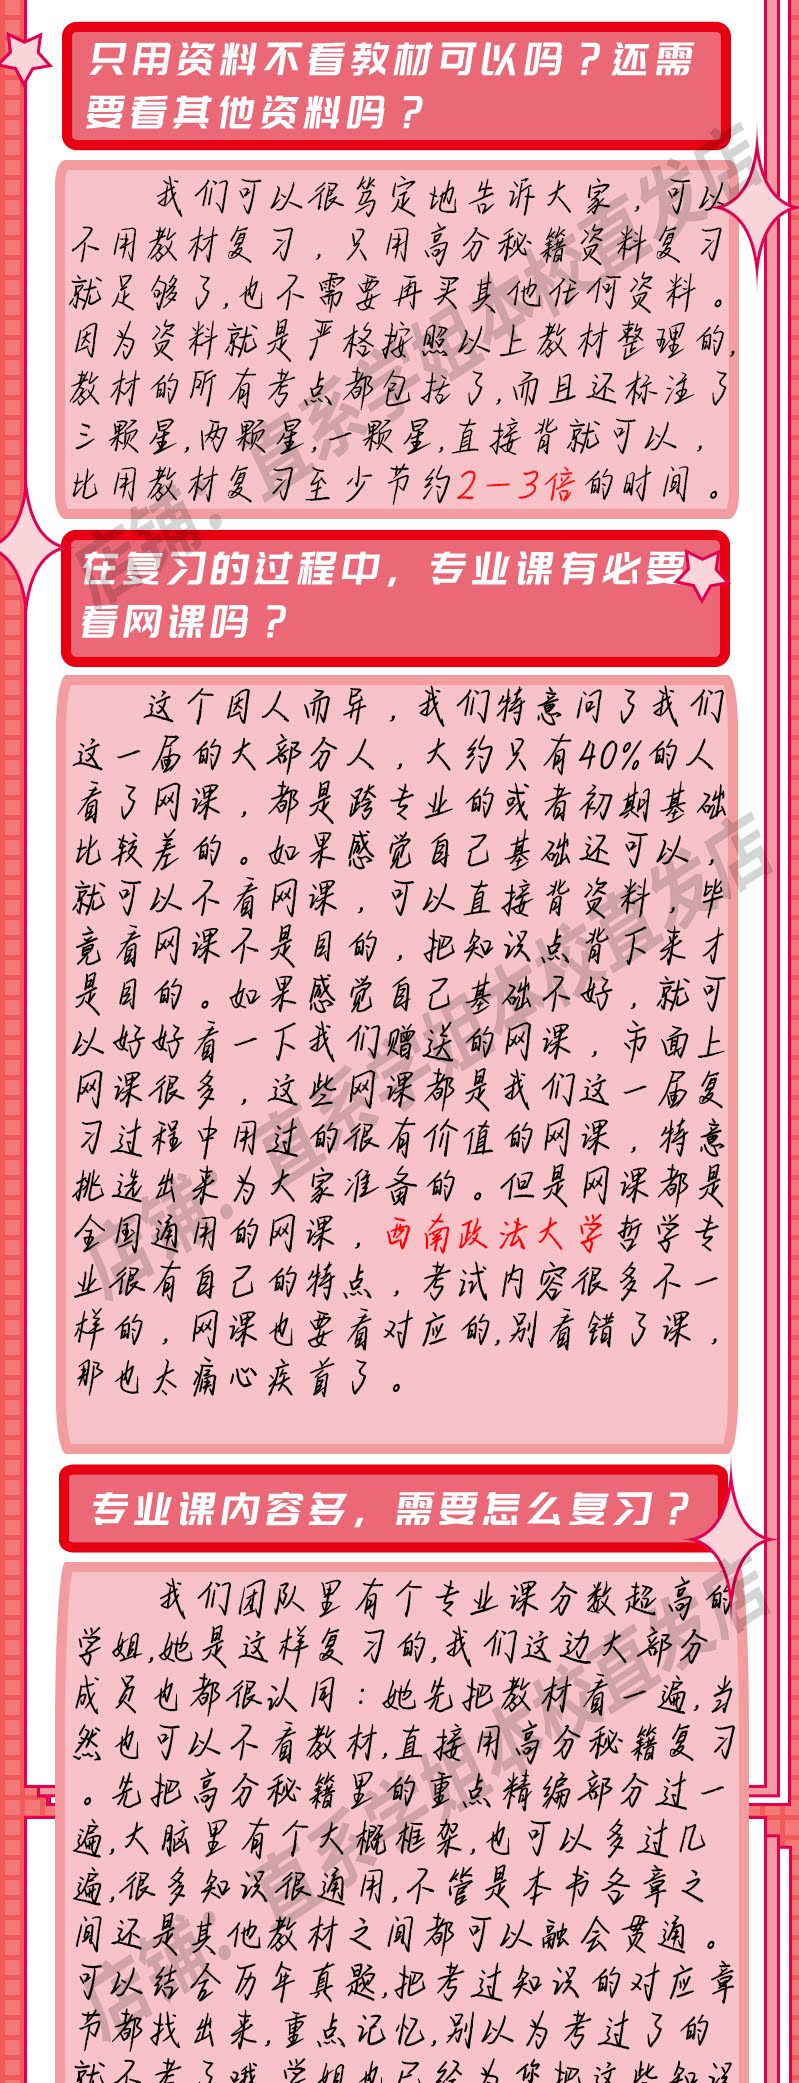 只用资料不看教材可以吗？还需
要看其他资料吗？
我们可以很笃定地告诉大家，可以
不用教材复习，只用高分秘籍资料复习
就足够了,也不需要再买其他任何资料。
因为资料就是严格按照以上教材整理的,
教材的所有考点都包括了,而且还标注了
三颗星,两颗星,一颗星,直接背就可以，
比用教材复习至少节约2-3倍的时间。
在复习的过程中，专业课有必要
看网课吗？
这个因人而异，我们特意问了我们
这一届的大部分人，大约只有40%的人
看了网课，都是跨专业的或者初期基础
比较差的。如果感觉自己基础还可以，
就可以不看网课，可以直接背资料，毕
竟看网课不是目的，把知识点背下来才
是目的。如果感觉自己基础不好，就可
以好好看一下我们赠送的网课，市面上
网课很多，这些网课都是我们这一届复
习过程中用过的很有价值的网课，特意
挑选出来为大家准备的。但是网课都是
全国通用的网课，西南政法大学哲学专
业很有自己的特点，考试内容很多不一
样的，网课也要看对应的,别看错了课，
那也太痛心疾首了。
专业课内容多，需要怎么复习？
我们团队里有个专业课分数超高的
学姐,她是这样复习的,我们这边大部分
成员也都很认同：她先把教材看一遍,当
然也可以不看教材,直接用高分秘籍复习
。先把高分秘籍里的重点精编部分过一
遍,大脑里有个大概框架,也可以多过几
遍,很多知识很通用,不管是本书各章之
间还是其他教材之间都可以融会贯通。
可以结合历年真题,把考过知识的对应章
节都找出来,重点记忆,别以为考过了的
就不考了哦,学姐也已经为您把这些知识
店铺：直系学姐本校直发店
店铺：直系学姐本校直发店
店铺：直系学姐本校直发店